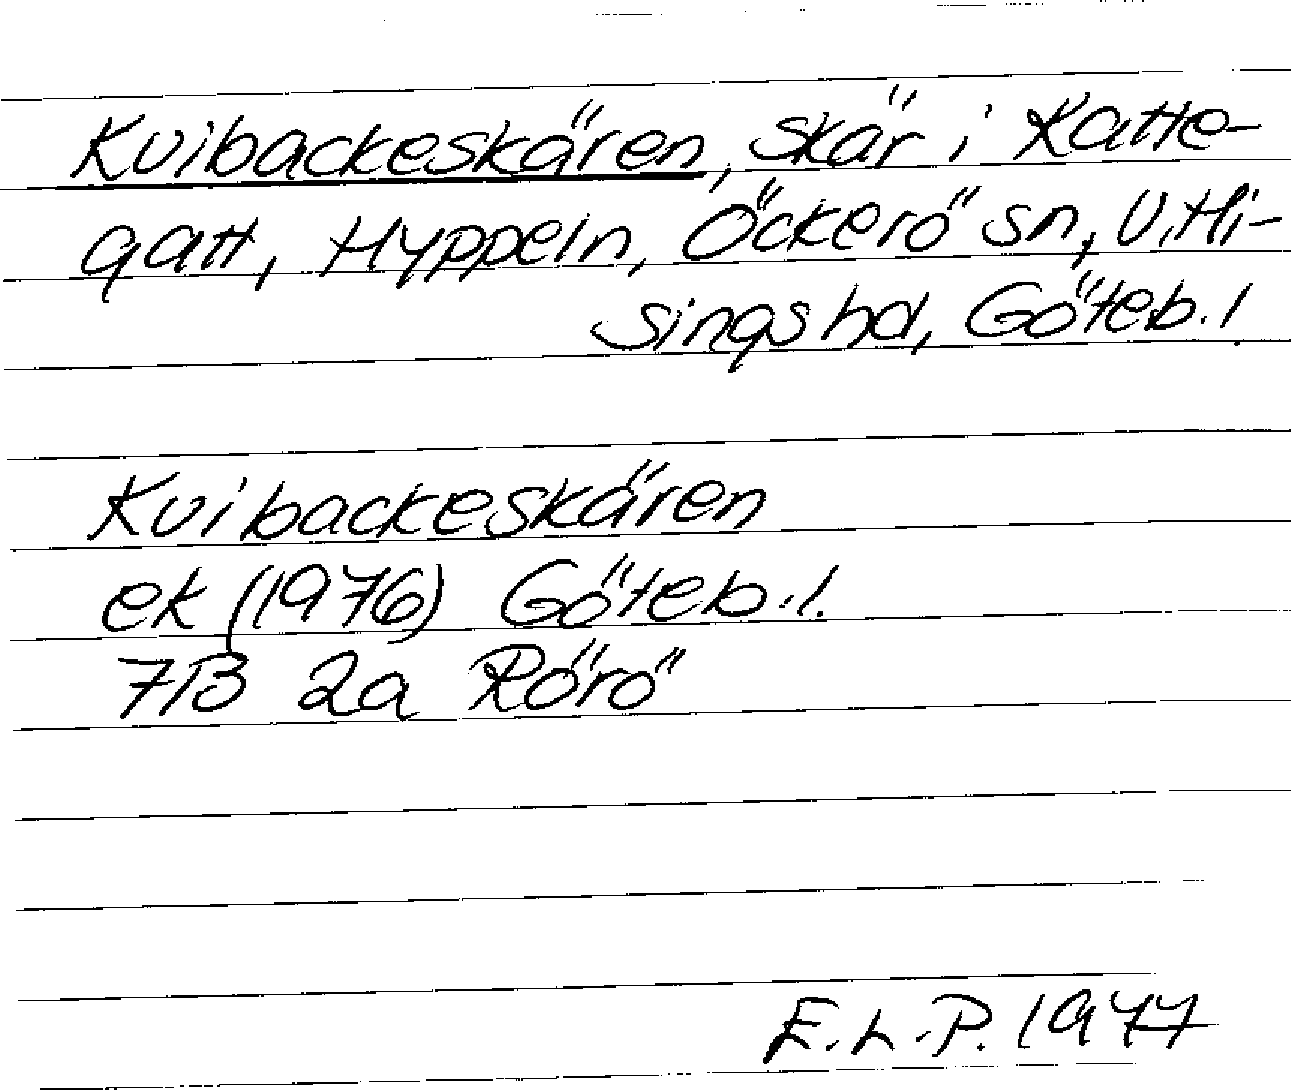 Kvibackeskären, skär i Katte-
gatt, Hyppeln, Öckerö sn, V. Hi-
sings hd, Göteb. l.
Kvibackeskären
ek (1976) Göteb. l.
7B 2a Rörö
E.L.P. 1977